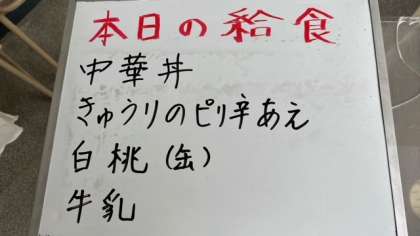 本日の給食
中華丼
きゅうりのピリ辛あえ
白桃(缶)
牛乳